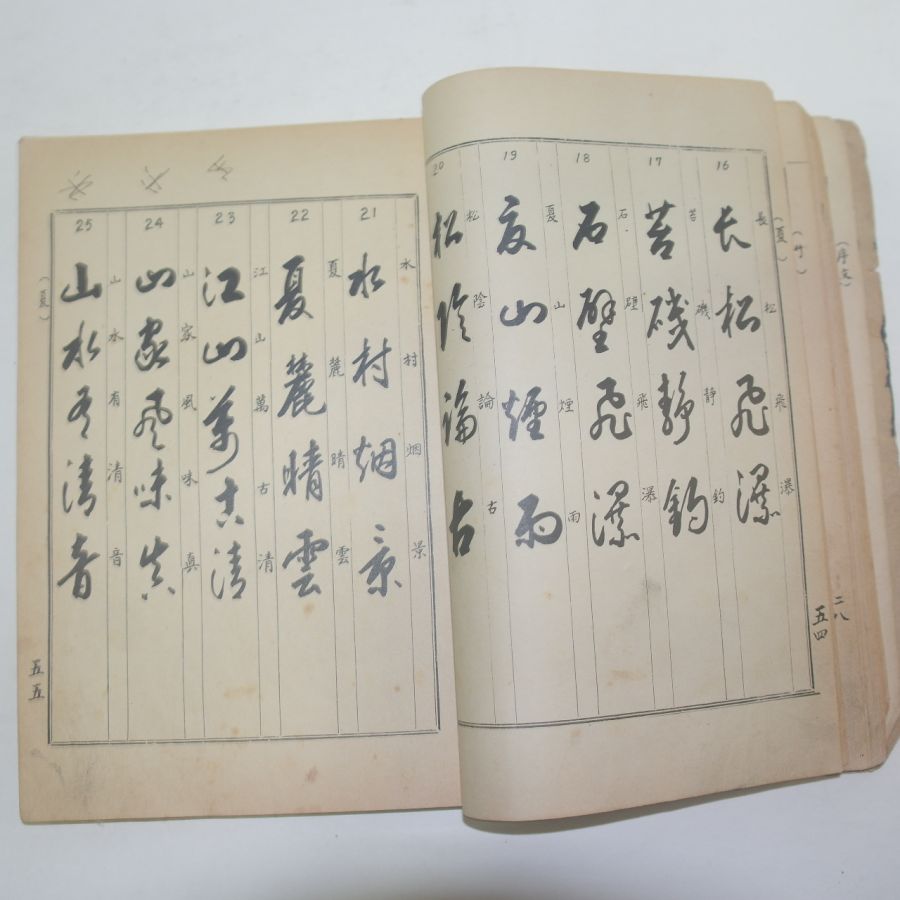 (序文)
(竹)
二八
(夏)
五四
16
長松飛瀑
長松飛瀑
17
苔磯静釣
苔磯静釣
18
石壁飛瀑
石壁飛瀑
19
夏山煙雨
夏山煙雨
20
松陰論古
松陰論古
21
水村烟景
水村烟景
22
夏麓晴雲
夏麓晴雲
23
江山萬古清
江山萬古清
24
山家風味真
山家風味真
25
山水有清音
山水有清音
(夏)
五五